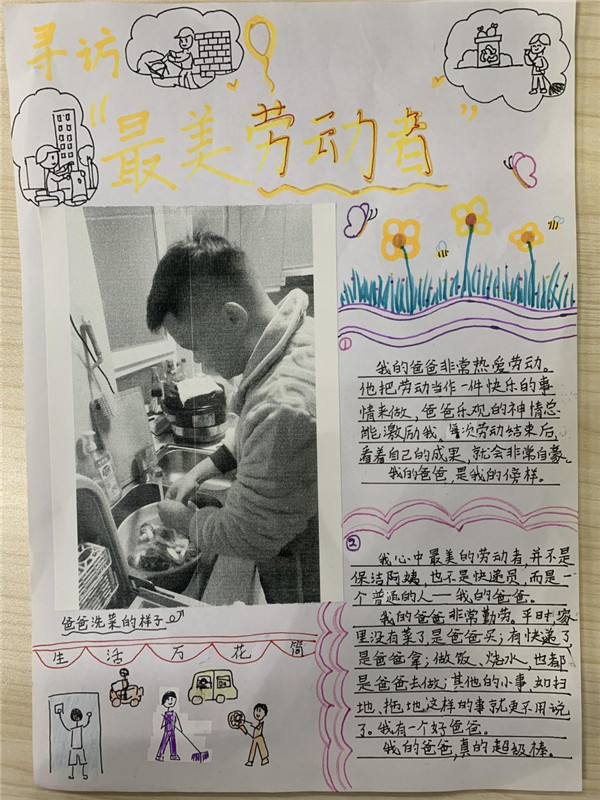 寻访
“最美劳动者”
①
我的爸爸非常热爱劳动。
他把劳动当作一件快乐的事
情来做，爸爸乐观的神情总
能激励我。每次劳动结束后，
看着自己的成果，就会非常自豪。
我的爸爸，是我的傍样。
②
我心中最美的劳动者，并不是
保洁阿姨，也不是快递员，而是一
个普通的人——我的爸爸。
我的爸爸非常勤劳。平时，家
里没有菜了，是爸爸买；有快递了，
是爸爸拿；做饭、烧水，也都
是爸爸去做；其他的小事，如扫
地、拖地，这样的事就更不用说
了。我有一个好爸爸。
我的爸爸，真的超级棒。
爸爸洗菜的样子
生活万花筒